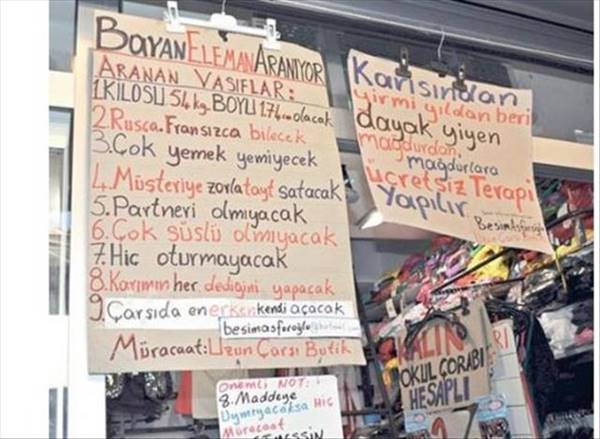 BayAN ELEMAN ARANIYOR
ARANAN VASIFLAR:
1.KILOSU 54kg. BOYU 1.74cm olacak
2.Rusca.Fransızca bilecek
3.Çok yemek yemiyecek
4.Müşteriye zorla tayt satacak
5.Partneri olmıyacak
6.Çok süslü olmıyacak
7.Hiç oturmayacak
8.Karımın her dediğini yapacak
9.Çarsıda en erken kendi açacak
besimasfuroglu@hotmail.com
Müracaat:Uzun Çarsı Butik
Önemli NOT:
8.Maddeye
Uymıyacaksa Hiç
Müracaat
ETMESSİN
Karısından
yirmi yıldan beri
dayak yiyen
mağdurdan,
mağdurlara
ücretsiz Terapi
Yapılır
Besim Asfuroğlu
Uzun Çarsı
KALIN
OKUL ÇORABI
HESAPLI